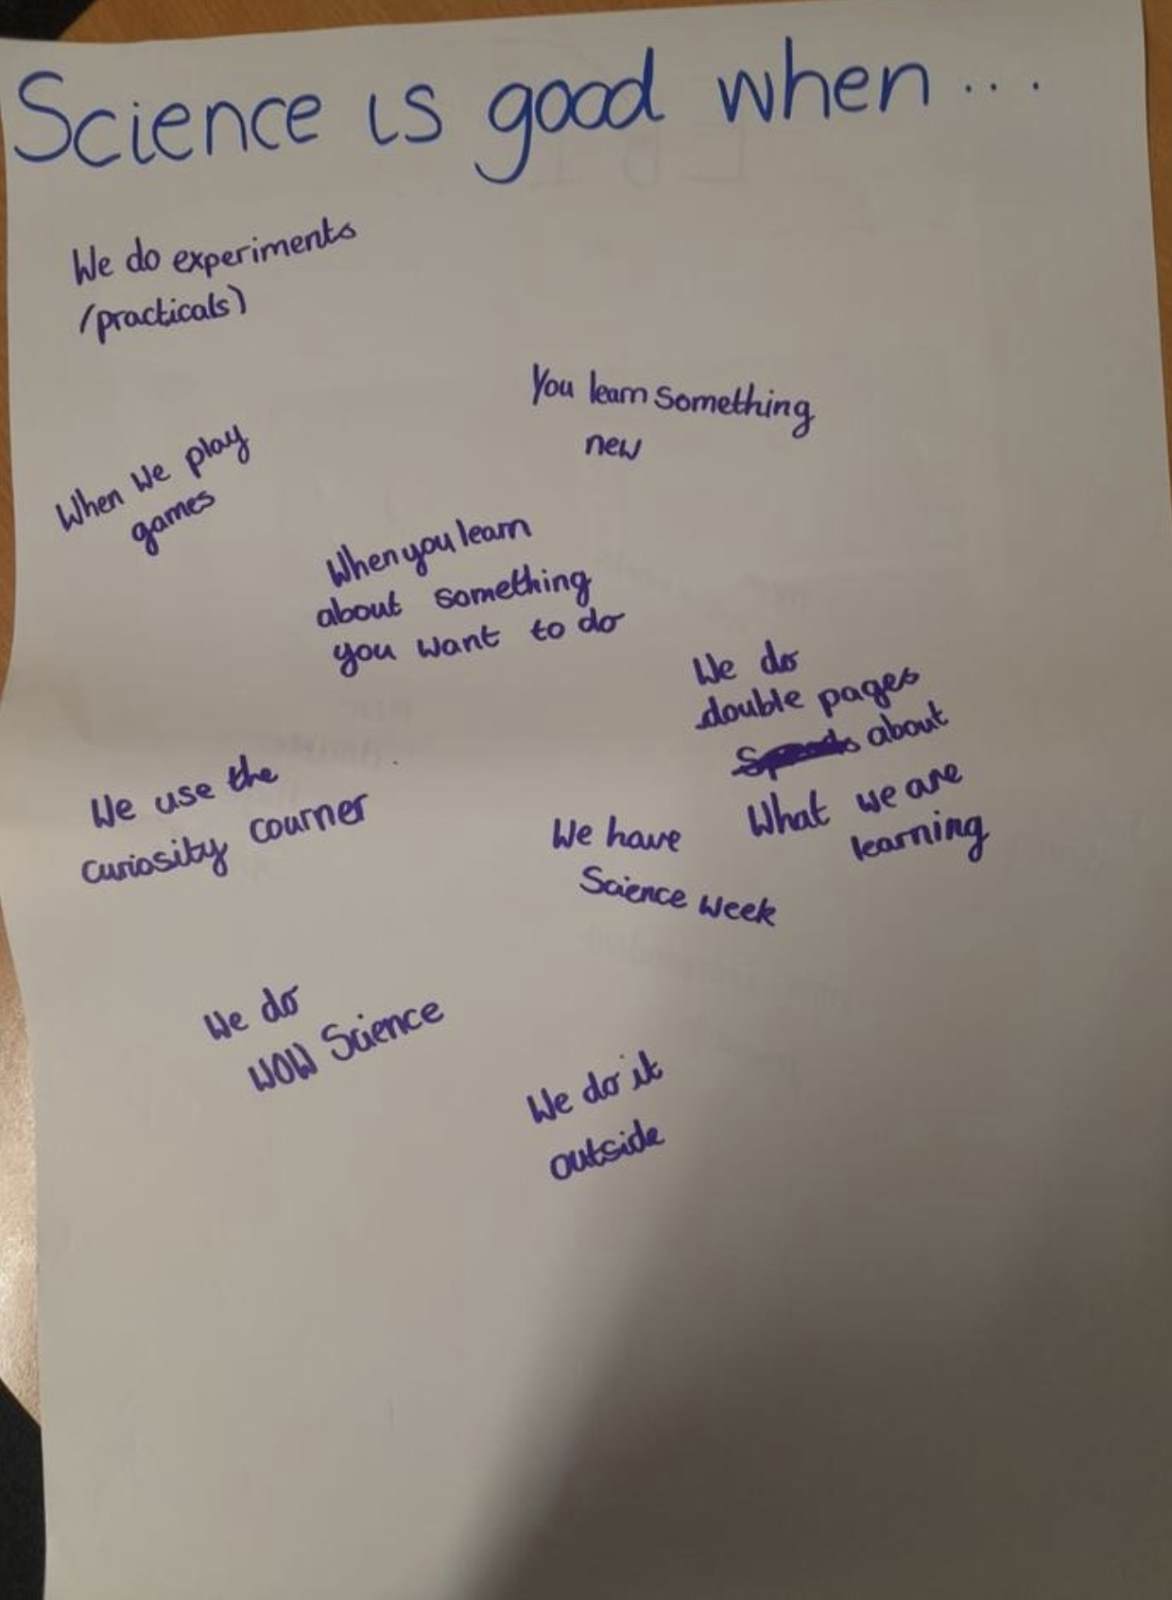 Science is good when...
We do experiments
(practicals)
You learn something
new
When we play
games
When you learn
about something
you want to do
We do
double pages
about
What we are
learning
We use the
curiosity courner
We have
Science week
We do
WOW Science
We do it
outside